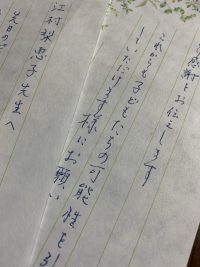 感謝をお伝えします
これからも子どもたちの可能性を引
していただけます様にお願い
江村梨恵子先生へ
先日の